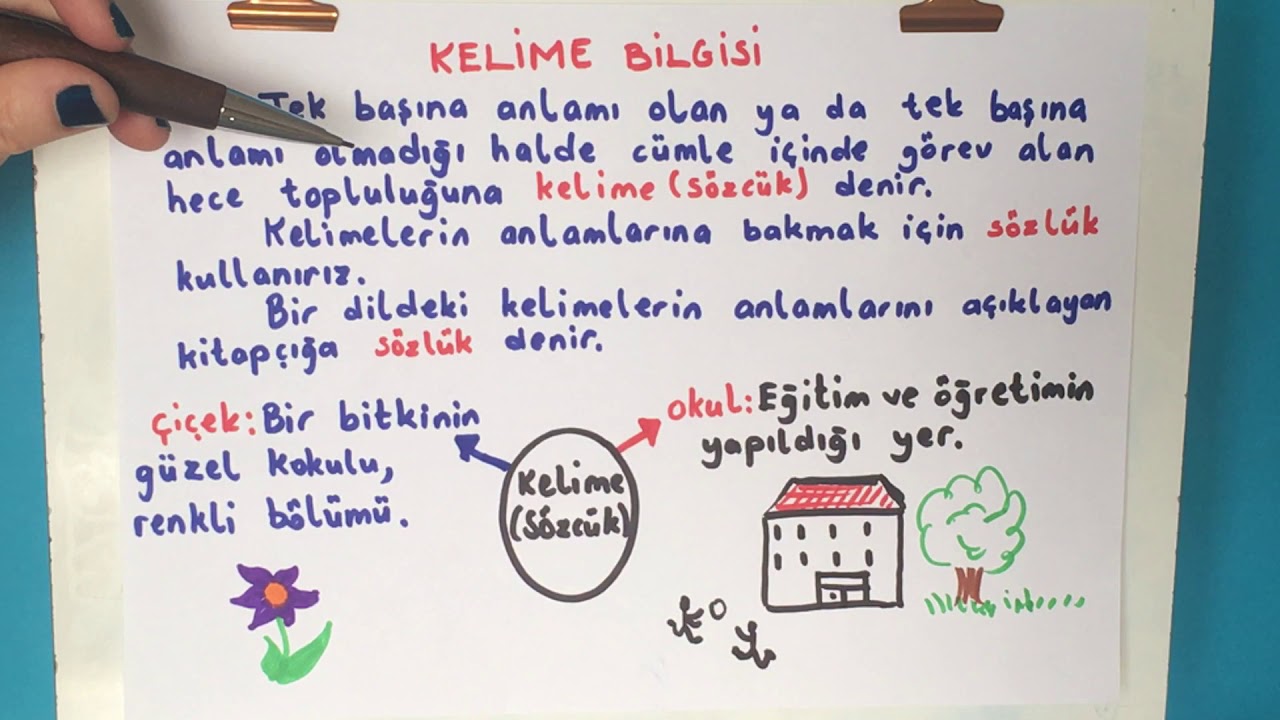 KELİME BİLGİSİ
Tek başına anlamı olan ya da tek başına
anlamı olmadığı halde cümle içinde görev alan
hece topluluğuna kelime (sözcük) denir.
Kelimelerin anlamlarına bakmak için sözlük
kullanırız.
Bir dildeki kelimelerin anlamlarını açıklayan
kitapçığa sözlük denir.
çiçek: Bir bitkinin
güzel kokulu,
renkli bölümü.
Kelime
(Sözcük)
okul: Eğitim ve öğretimin
yapıldığı yer.